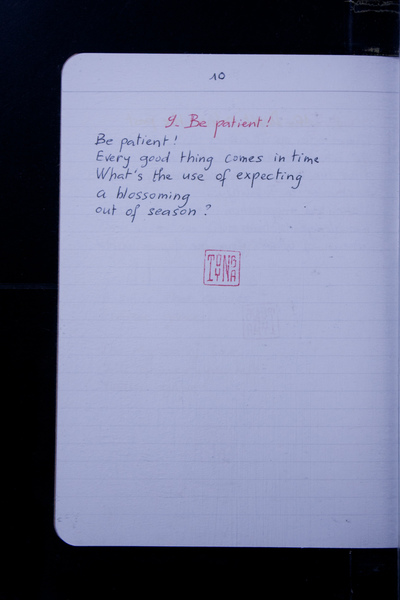 10
9- Be patient!
Be patient!
Every good thing comes in time
What's the use of expecting
a blossoming
out of season?